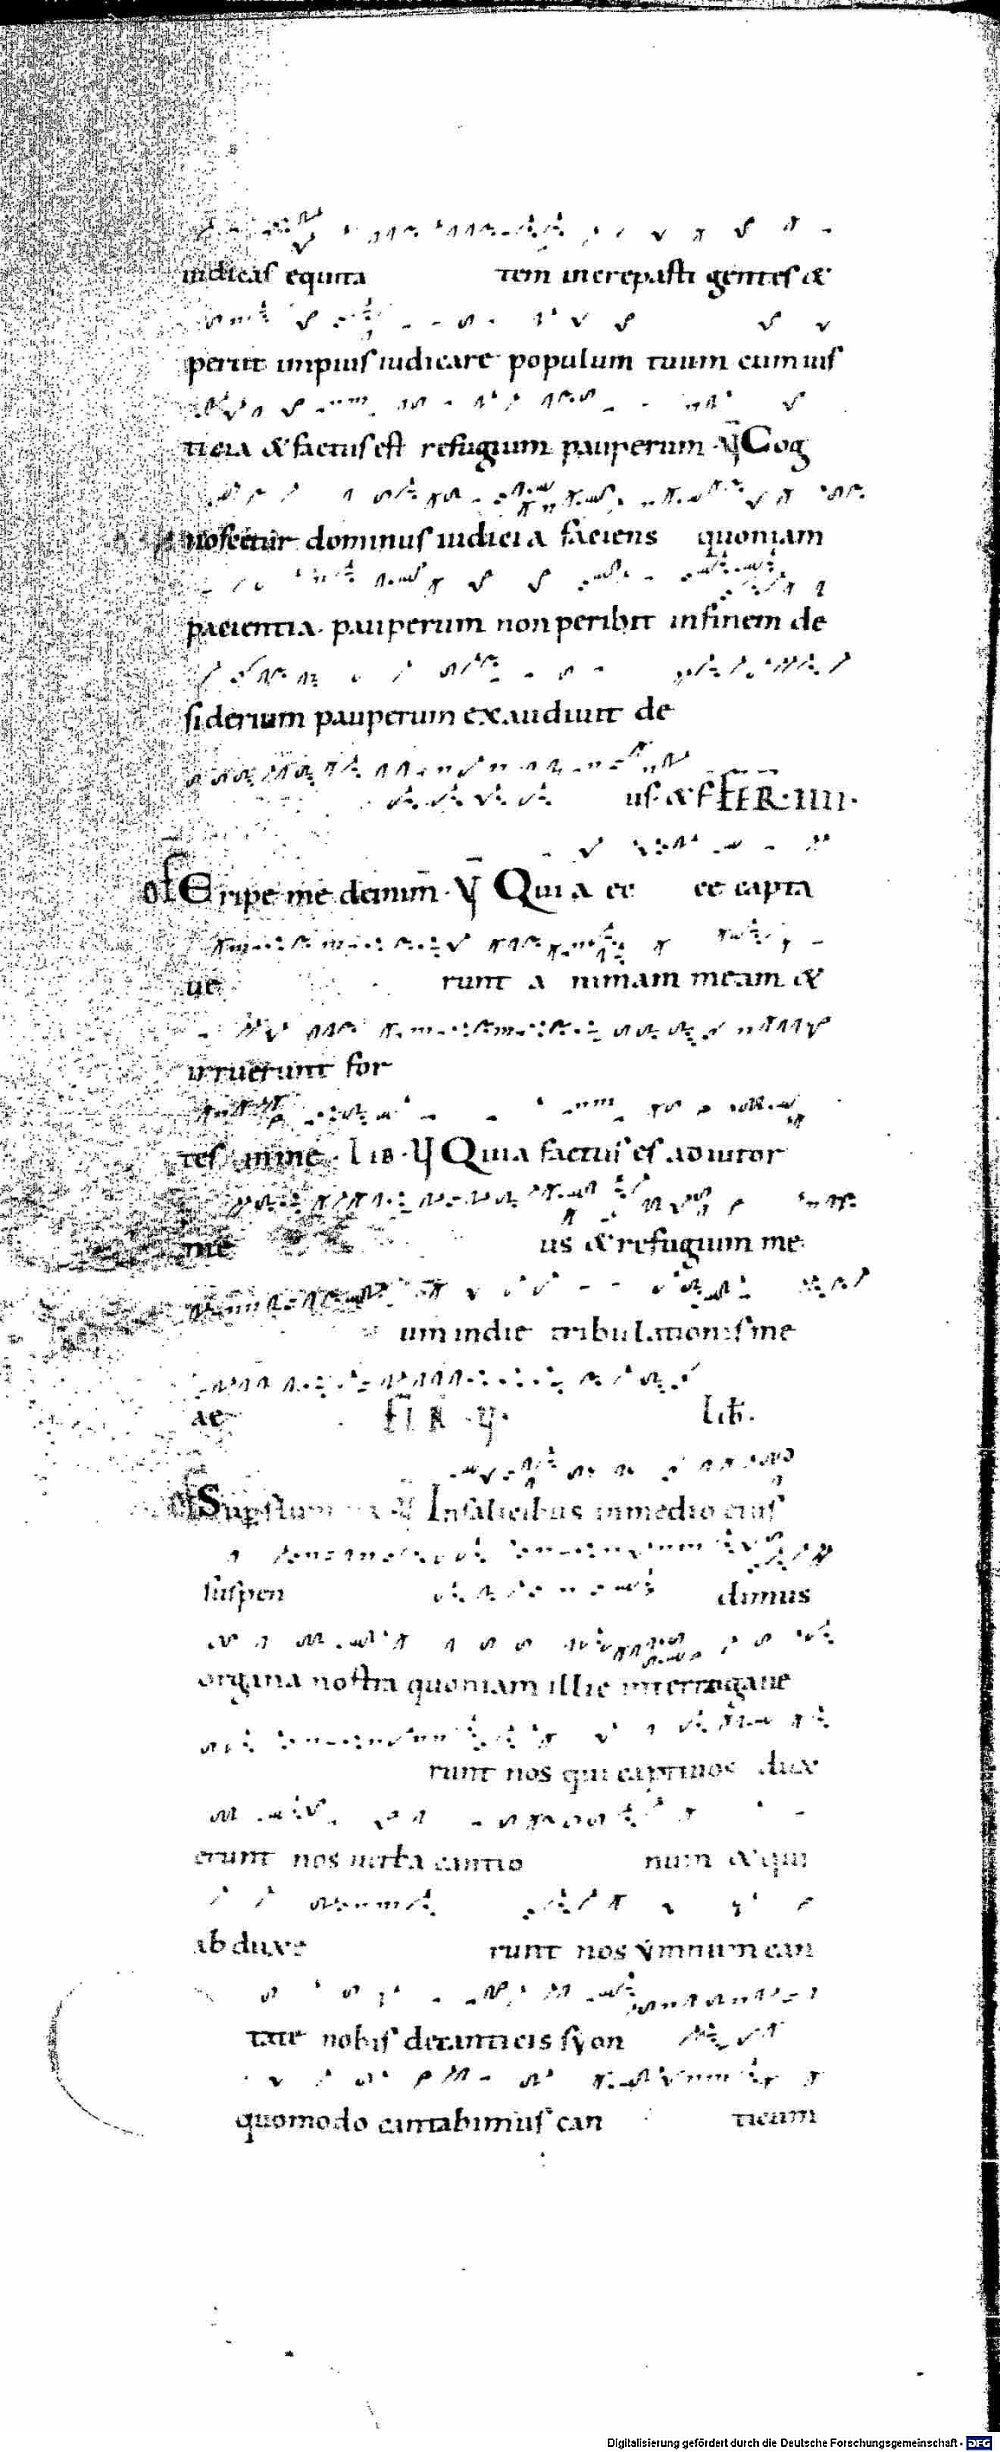 iudicas equita tem increpasti gentes &
periit impius iudicare populum tuum cum ius
ticia & factus est refugium pauperum · V̄ Cog
noscetur dominus iudicia faciens quoniam
pacientia pauperum non peribit in finem de
siderium pauperum exaudiuit de
us · & F FER · IIII ·
of Eripe me de inim̄ · V̄ Quia ec ce capta
ue runt a nimam meam &
irruerunt for
tes in me · LIB · V Quia factus es adiutor
me us & refugium me
um in die tribulationis me
ae lib̄ ·
of Sup flum V̄ In salicibus in medio eius
suspen dimus
organa nostra quoniam illic interrogaue
runt nos qui captiuos dux
erunt nos uerba cantio num & qui
abduxe runt nos ymnum can
tate nobis de canticis syon
quomodo cantabimus can ticum
Digitalisierung gefördert durch die Deutsche Forschungsgemeinschaft - DFG